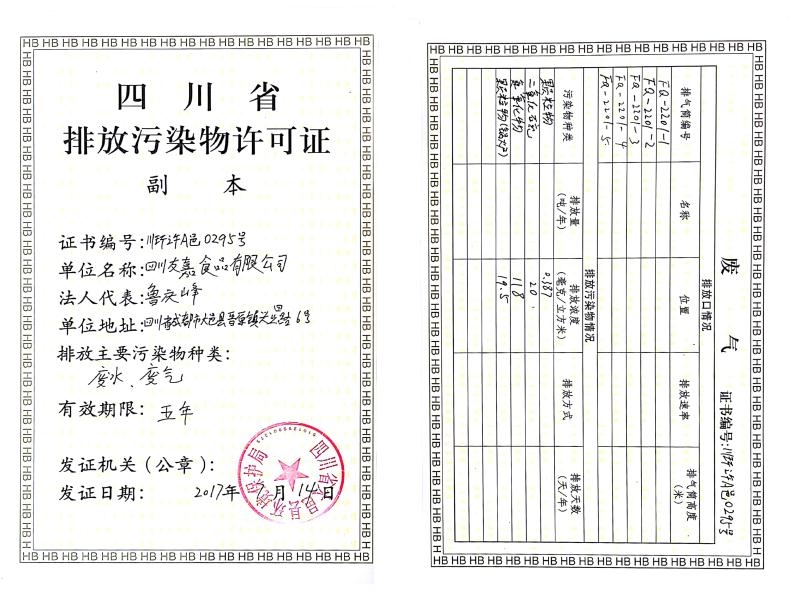 四川省
排放污染物许可证
副本
证书编号:川环许A邑0295号
单位名称:四川友嘉食品有限公司
法人代表:鲁云峰
单位地址:四川省成都市大邑县晋原镇兴业四路6号
排放主要污染物种类:
废水、废气
有效期限:五年
发证机关(公章):
发证日期: 2017年 月14日
四川省大邑县环境保护局
废气
证书编号:川环许A邑0295号
排放口情况
排气筒编号 名称 位置 排放速率 排气筒高度(米)
FQ-2201-1
FQ-2201-2
FQ-2201-3
FQ-2201-4
FQ-2201-5
排放污染物情况
污染物种类 排放量(吨/年) 排放浓度(毫克/立方米) 排放方式 排放天数(天/年)
颗粒物 0.387
二氧化硫 20
氮氧化物 118
颗粒物 19.5